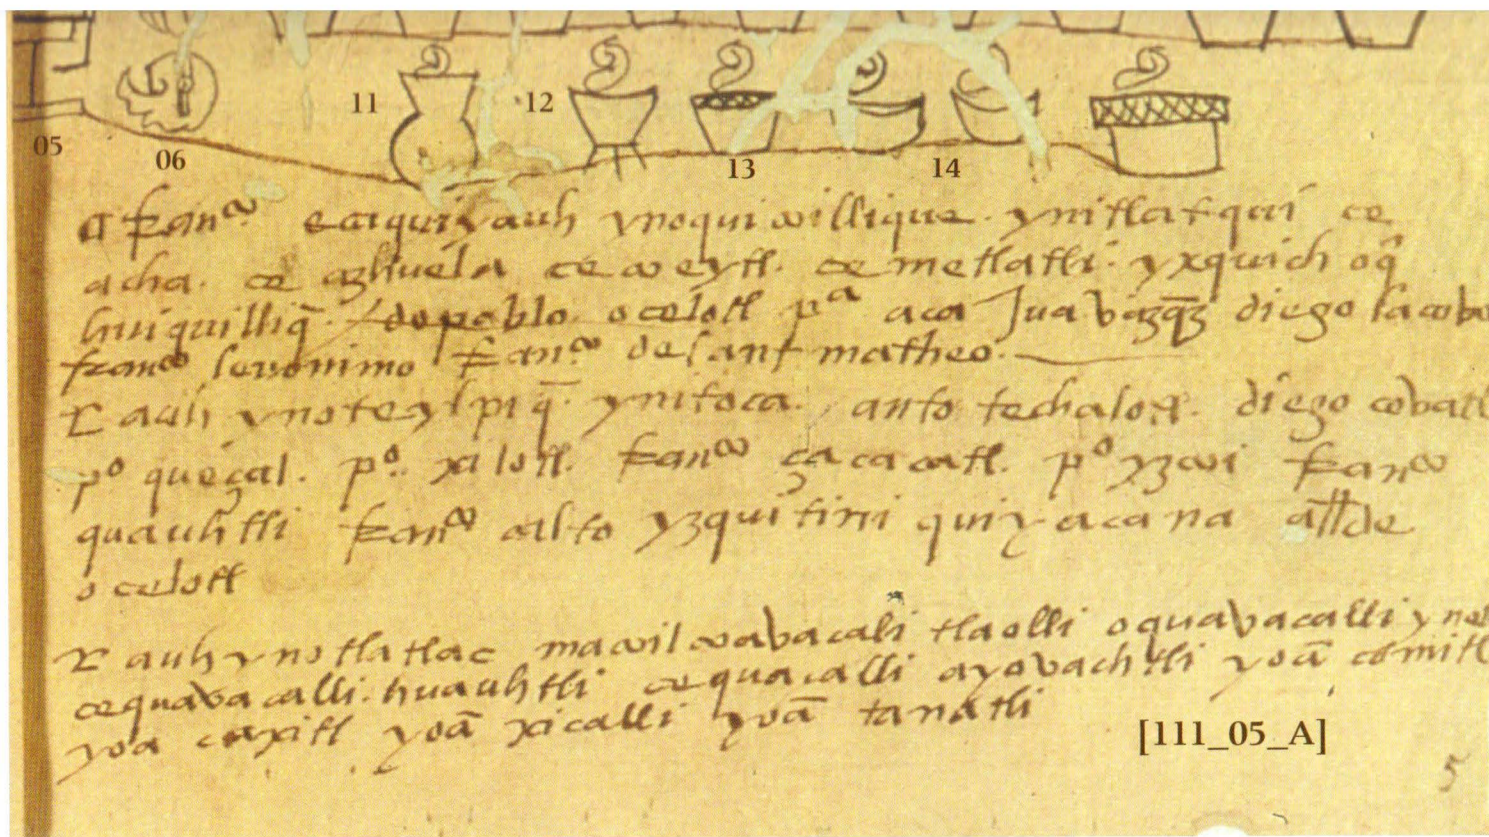 11
12
05
06
13
14
franco ecaquiyauh ynoquicuillique. ynitlatqui ce
acha. ce azhuela ce coeytl. ce metlatli. yxquich oq̃
huiquilliq̃. / do pablo. ocelotl pa aca Jua vazq̃z diego Jacobo
franco Jeronimo franco de sant matheo.
auh ynoteylpiq̃. ynitoca. anto techalotl. diego covatl
po queçal. po. xilotl. franco çacacatl. po yzcui franco
quauhtli franco calto yzquitin quiyacana allde
ocelotl
auh ynotlatlac macuil coavacali tlaolli oquavacalli yne
cequavacalli. huauhtli cequacalli ayovachtli yoã comitl
yoa caxitl yoã xicalli yoã tanatli
[111_05_A]
5